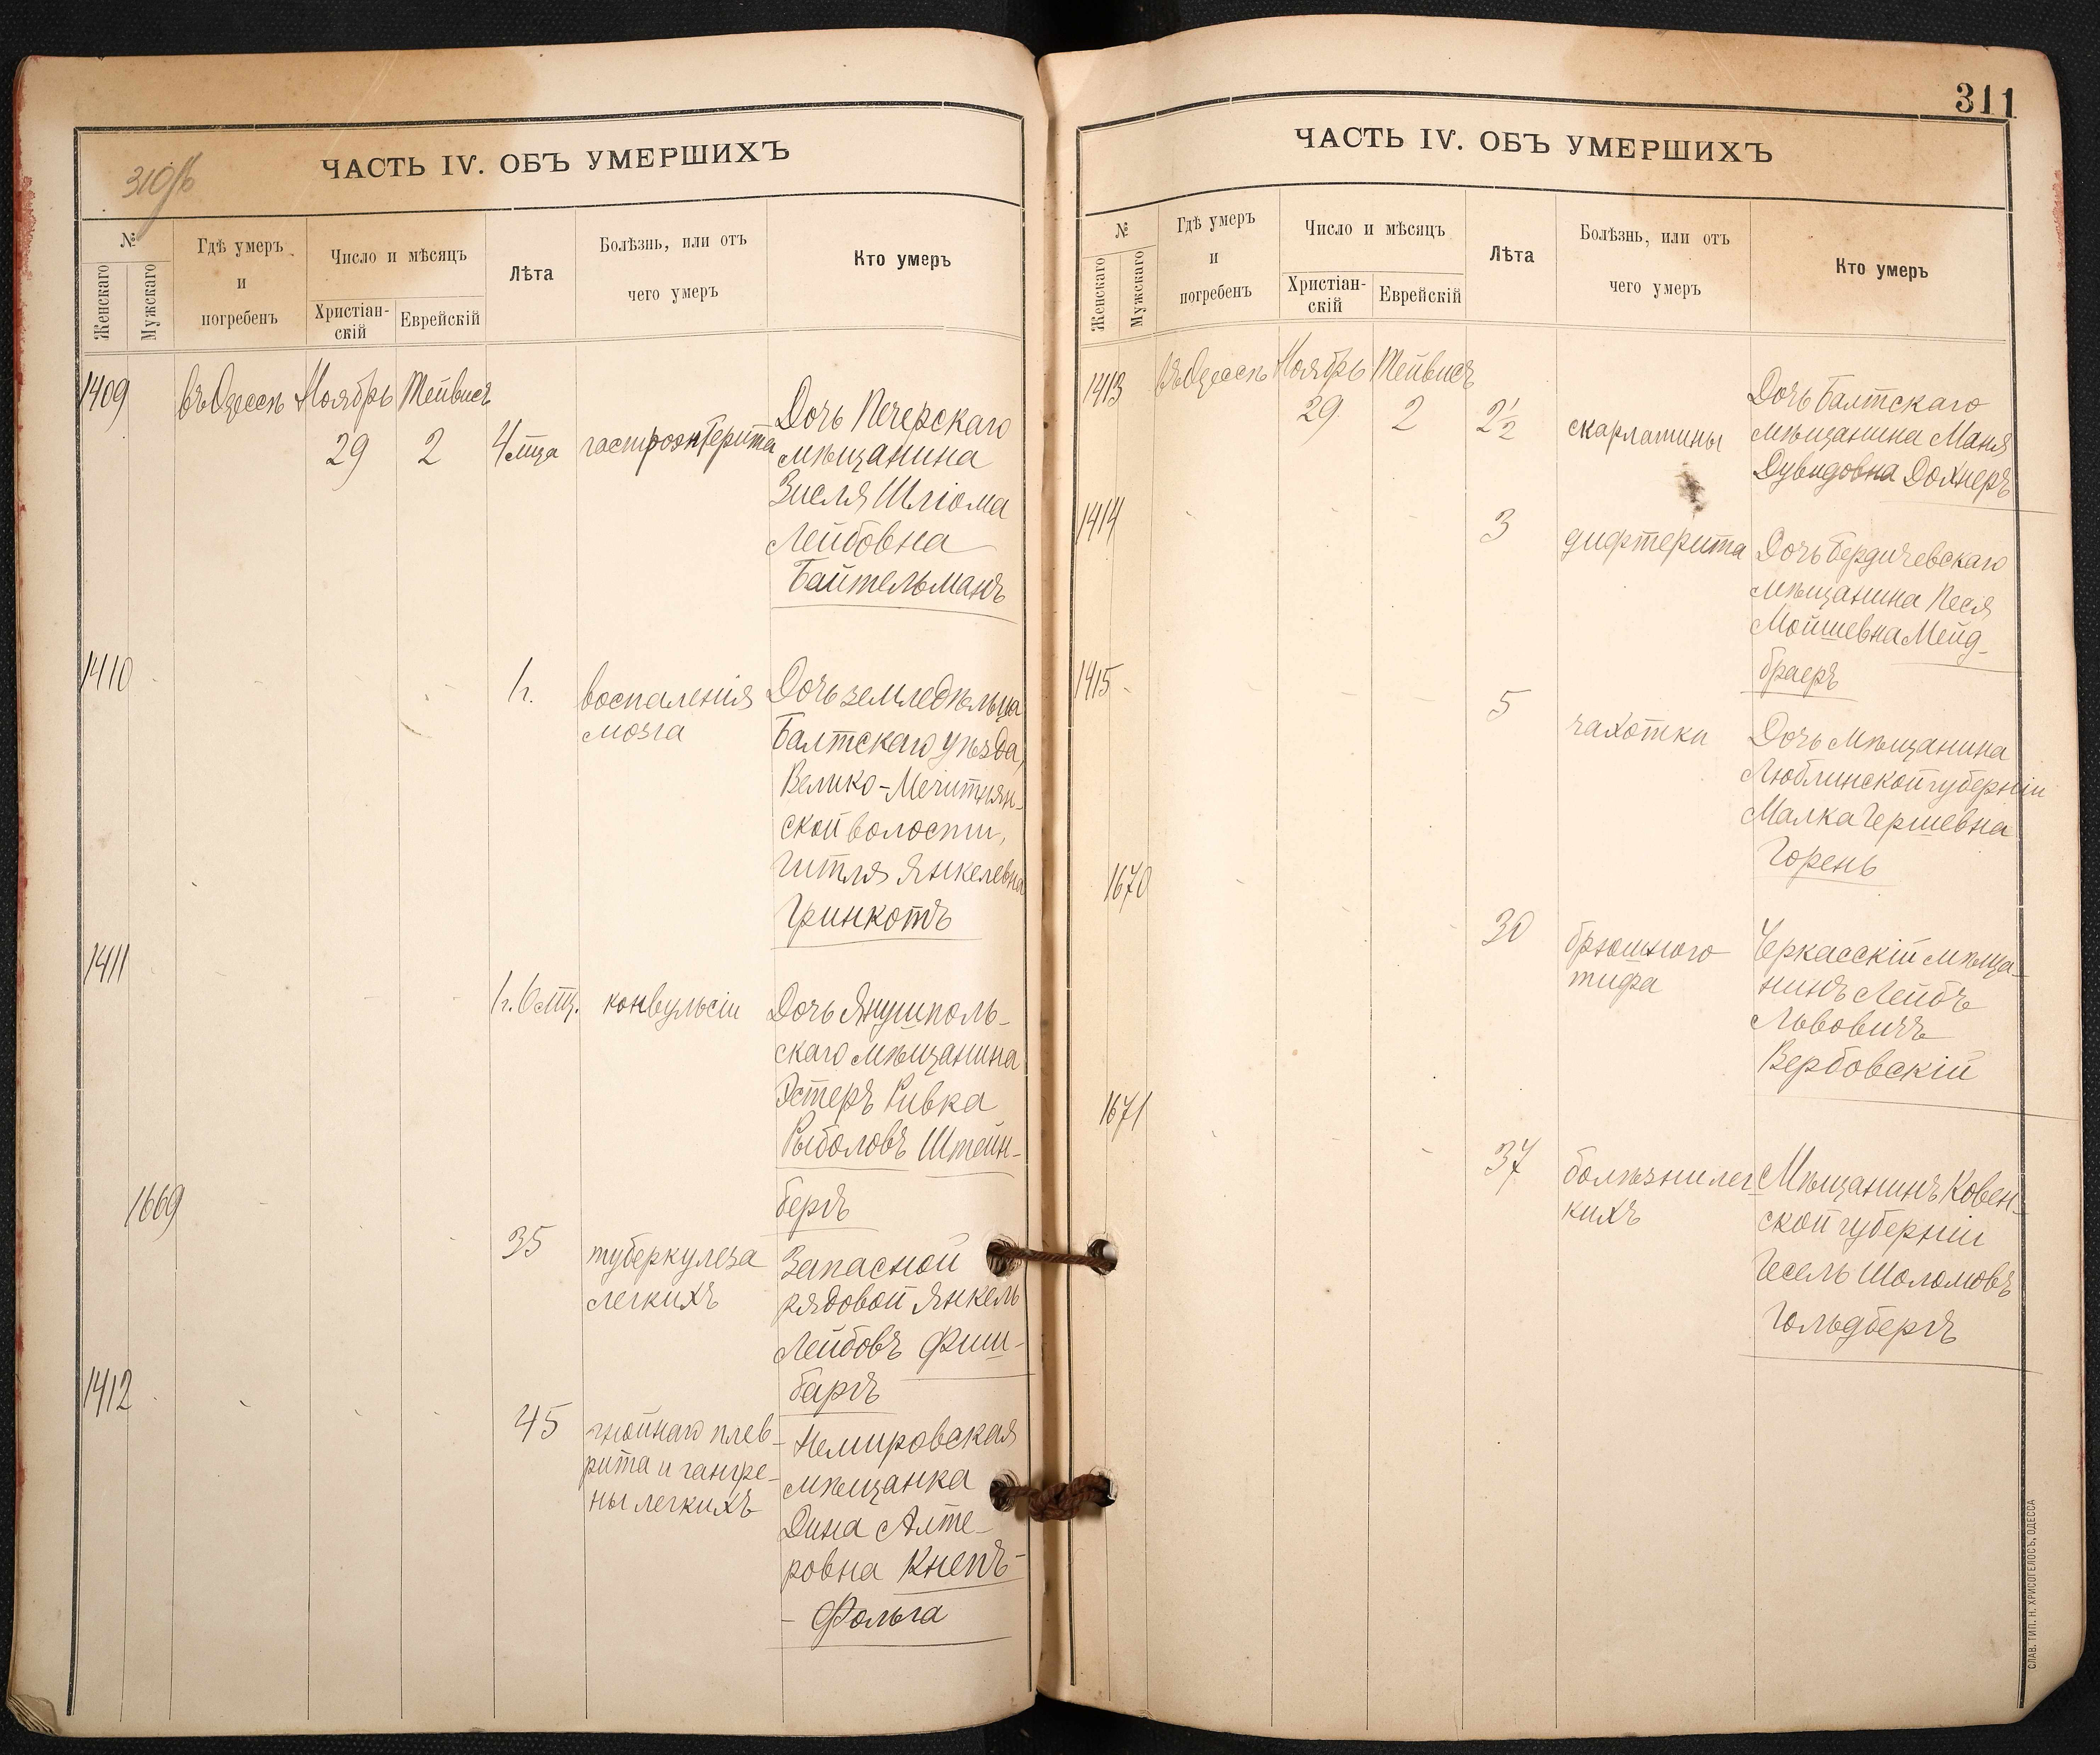 310 об
ЧАСТЬ IV. ОБЪ УМЕРШИХЪ
№
Женскаго
Мужскаго
Гдѣ умеръ
и
погребенъ
Число и мѣсяцъ
Христіан-
скій
Еврейскій
Лѣта
Болѣзнь, или отъ
чего умеръ
Кто умеръ
1409 въ Одессѣ Ноябрь Тейвисъ
29 2 4 мца гастроэнтерита
Дочь Печерскаго
мѣщанина
Зисля Шліома
Лейбовна
Байтельманъ
1410 1 г. воспаленія
мозга
Дочь земледѣльца
Балтскаго уѣзда,
Велико-Мечитнян-
ской волости,
Гитля Янкелевна
Гринкотъ
1411 1 г. 6 мц. конвульсіи
Дочь Янушполь-
скаго мѣщанина
Эстеръ Ривка
Рыболовъ Штейн-
бергъ
1669 35 туберкулеза
легкихъ
Запасной
рядовой Янкель
Лейбовъ Фиш-
баргъ
1412 45 гнойнаго плев-
рита и гангре-
ны легкихъ
Немировская
мѣщанка
Дина Алте-
ровна Кнепъ-
- Фольга
311
ЧАСТЬ IV. ОБЪ УМЕРШИХЪ
№
Женскаго
Мужскаго
Гдѣ умеръ
и
погребенъ
Число и мѣсяцъ
Христіан-
скій
Еврейскій
Лѣта
Болѣзнь, или отъ
чего умеръ
Кто умеръ
1413 Въ Одессѣ Ноябрь Тейвисъ
29 2 2½ скарлатины
Дочь Балтскаго
мѣщанина Маня
Дувидовна Дохнеръ
1414 3 дифтерита
Дочь Бердичевскаго
мѣщанина Песя
Мойшевна Мейд-
браеръ
1415 5 чахотки
Дочь мѣщанина
Люблинской губерніи
Малка Гершевна
Горень
1670 30 брюшного
тифа
Черкасскій мѣща-
нинъ Лейбъ
Львовичъ
Вербовскій
1671 37 болѣзни лег-
кихъ
Мѣщанинъ Ковен-
ской губерніи
Гесель Шоломовъ
Гольдбергъ
СЛАВ. ТИП. Н. ХРИСОГЕЛОСЪ, ОДЕССА